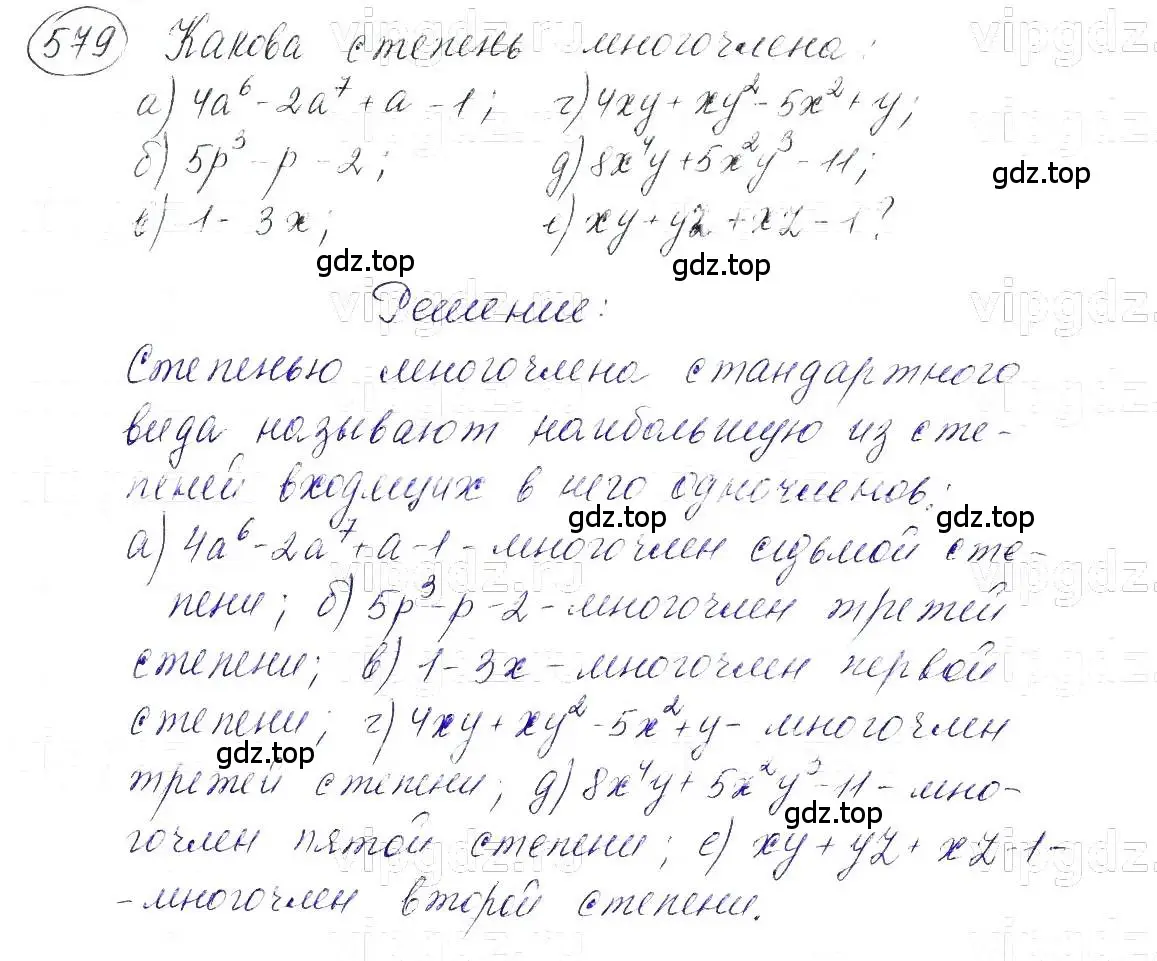 579 Какова степень многочлена:
а) 4a⁶ - 2a⁷ + a - 1; г) 4xy + xy² - 5x² + y;
б) 5p³ - p - 2; д) 8x⁴y + 5x²y³ - 11;
gdz.top
в) 1 - 3x; е) xy + yz + xz - 1?
gdz.top gdz.top
Решение:
Степенью многочлена стандартного
вида называют наибольшую из сте-
пеней входящих в него одночленов:
gdz.top gdz.top
а) 4a⁶ - 2a⁷ + a - 1 - многочлен седьмой сте-
пени; б) 5p³ - p - 2 - многочлен третей
степени; в) 1 - 3x - многочлен первой
степени; г) 4xy + xy² - 5x² + y - многочлен
gdz.top
третей степени; д) 8x⁴y + 5x²y³ - 11 - мно-
gdz.top
гочлен пятой степени; е) xy + yz + xz - 1 -
- многочлен второй степени.